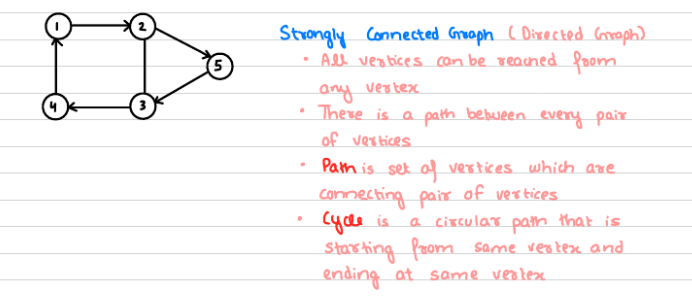 1
2
5
4
3
Strongly Connected Graph (Directed Graph)
• All vertices can be reached from
any vertex
• There is a path between every pair
of vertices
• Path is set of vertices which are
connecting pair of vertices
• Cycle is a circular path that is
starting from same vertex and
ending at same vertex